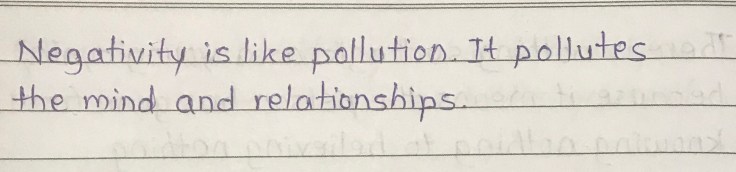 Negativity is like pollution. It pollutes
the mind and relationships.